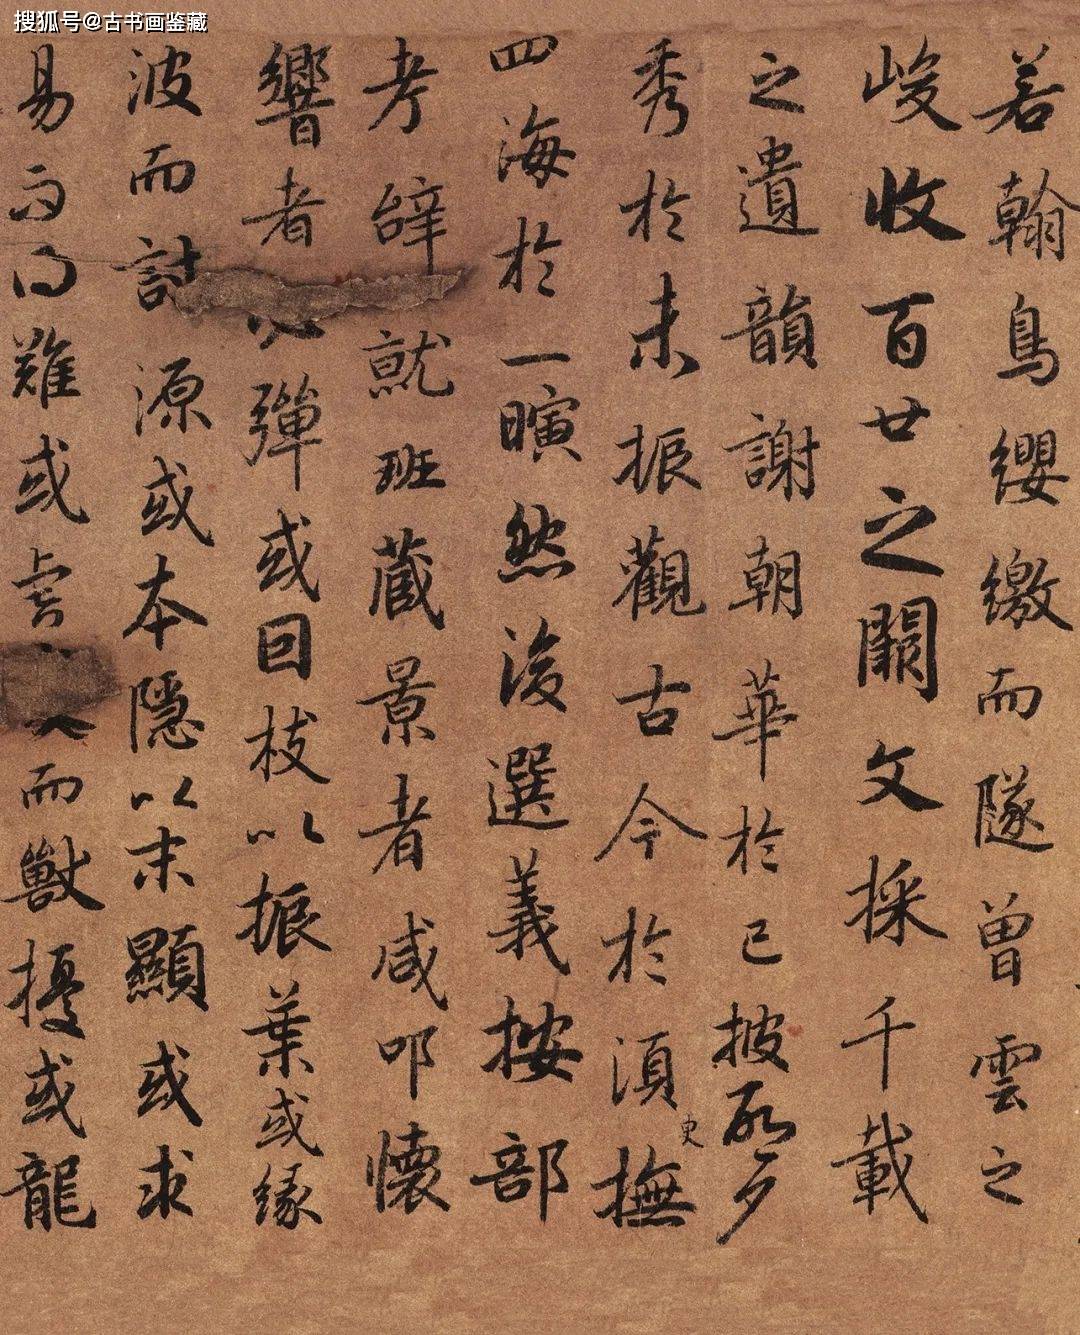 搜狐号@古书画鉴藏
若翰鳥纓繳而隧曾雲之
峻收百世之闕文採千載
之遺韻謝朝華於已披啓夕
秀於未振觀古今於須臾撫
四海於一瞚然後選義按部
考辭就班藏景者咸叩懷
響者必彈或因枝以振葉或緣
波而討源或本隱以末顯或求
易而得難或虎而獸擾或龍